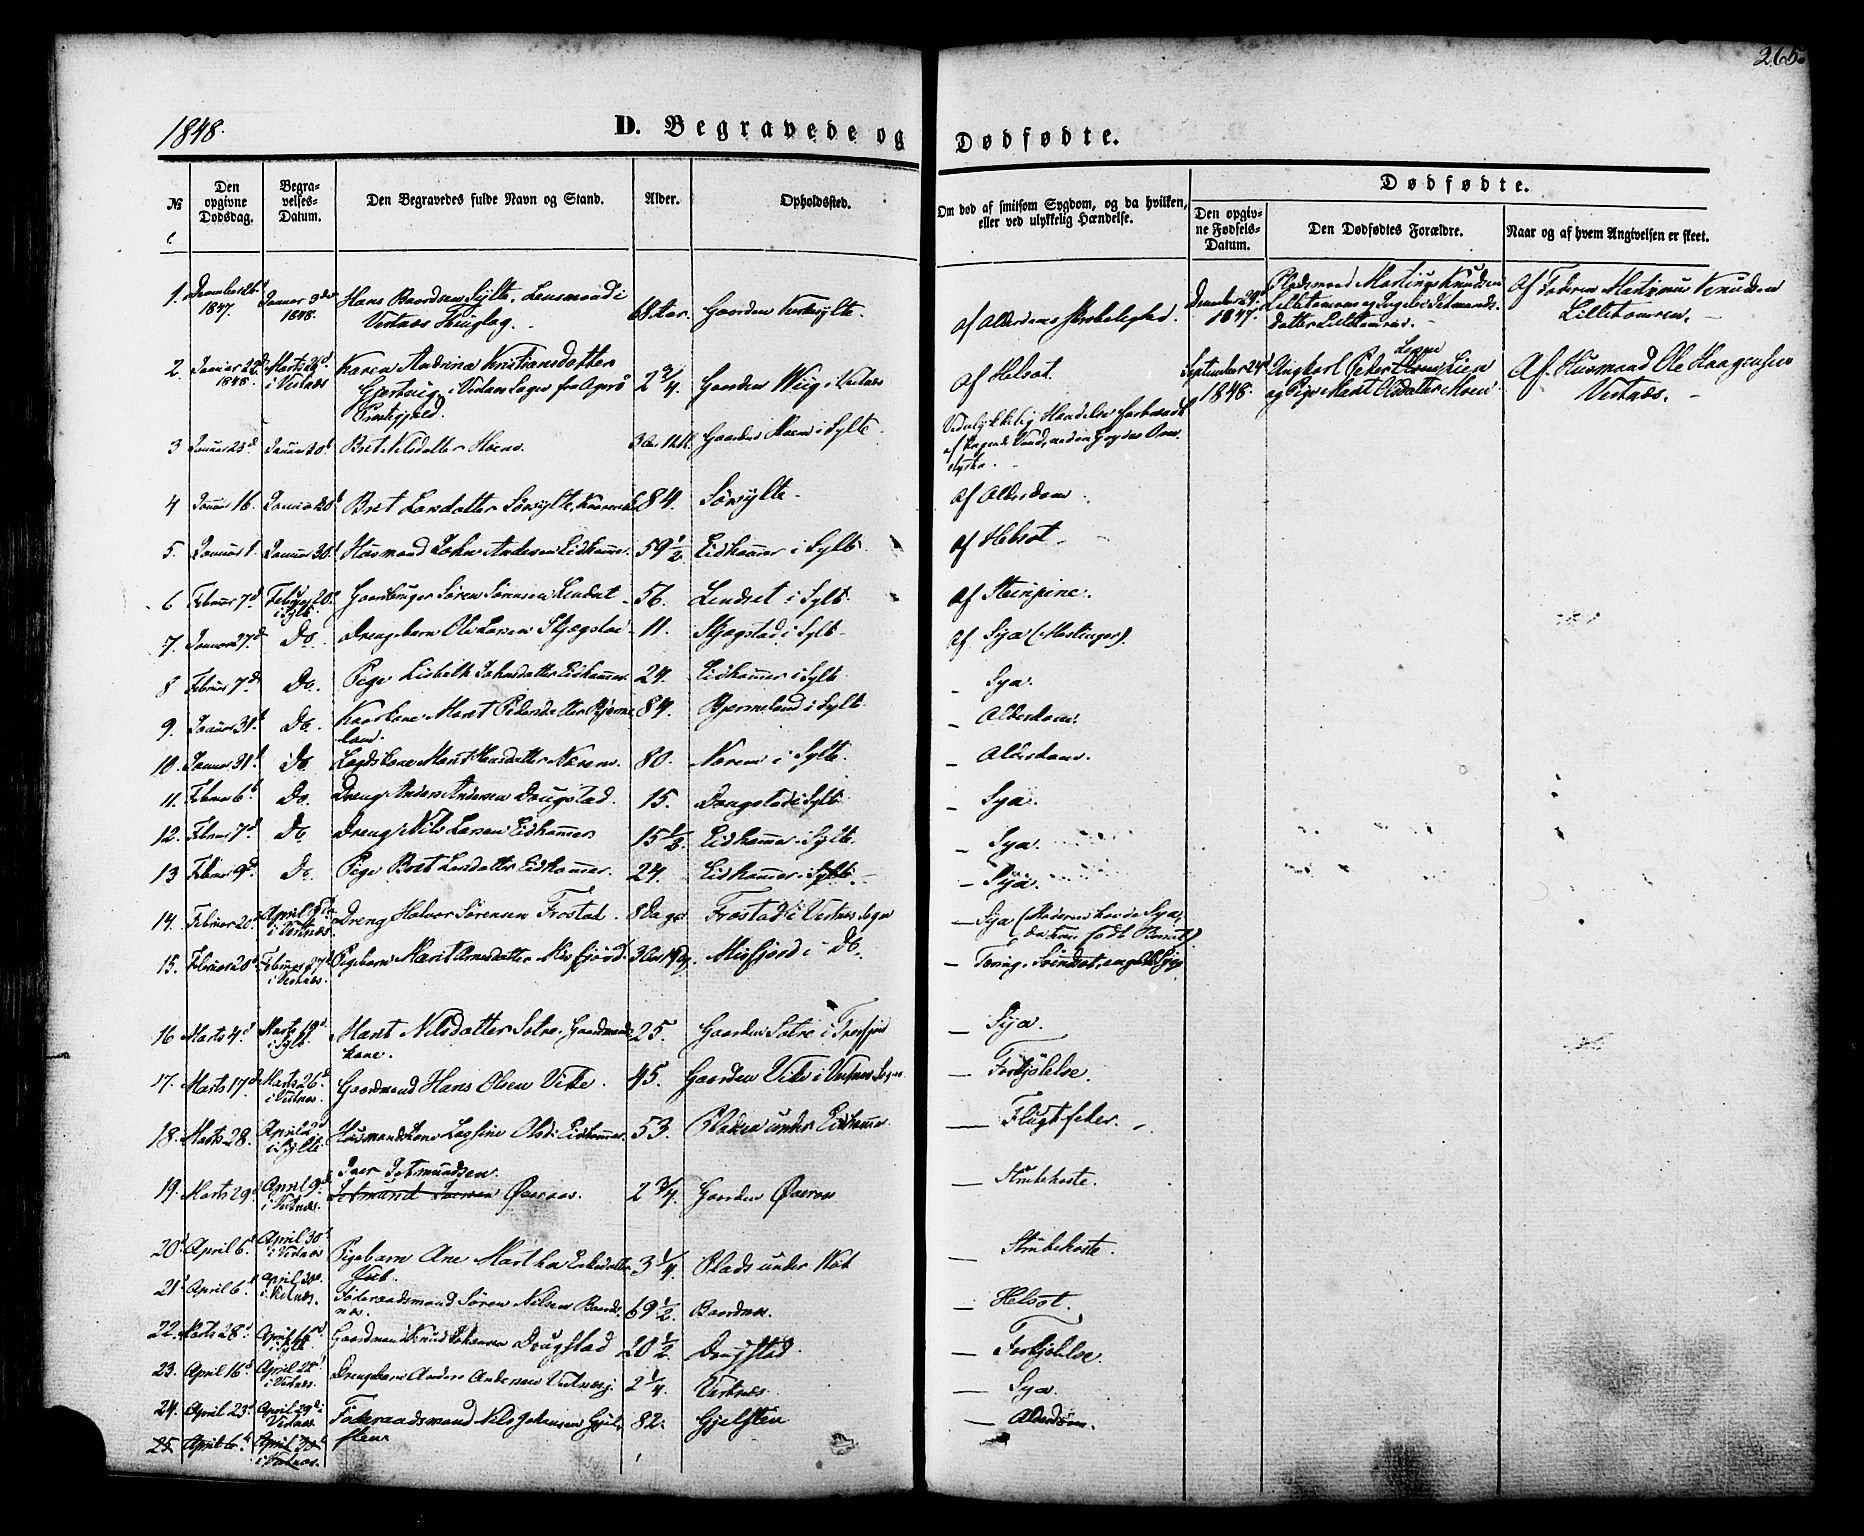 265.
1848.
D. Begravede og Dødfødte.
№
Den opgivne Dødsdag.
Begravelses-Datum.
Den Begravedes fulde Navn og Stand.
Alder.
Opholdssted.
Om død af smitsom Sygdom, og da hvilken, eller ved ulykkelig Hændelse.
Dødfødte.
Den opgivne Fødsels-Datum.
Den Dødfødtes Forældre.
Naar og af hvem Angivelsen er skeet.
1. December 26 1847. Januar 9de 1848. Hans Baardsen Sylte, Lensmand i Vestnæs Thinglag. 68 Aar. Gaarden Sylte. af Alderdoms Skrøbelighed. December 29 1847. Pladsmand Martinus Knudsen Lilletomren og Ingeb: Setmunds-datter Lilletomren. Af Faderen Martinus Knudsen Lilletomren.
2. Januar 22 1848. Marts 26 i Vestnæs Karen Andrina Kristiansdatter Gjertvig, i Vestnæs Sogn 2 3/4. Gaarden Wiig i Vestnæs af Helsot. September 24 1848. Ungkarl Peder Lien og Pige Marit Olsdatter Moen Af Husmand Ole Haagensen Vestnæs.
3 Januar 23d Januar 30 Bret Nilsdatter Moen. Gaarden Moen i Sylte. Ved ulykkelig Hændelse
4 Januar 16. Januar 30 Bret Larsdatter Sørsylte, 84. Sørsylte. af Alderdom
5. Januar 1. Januar 30 Husmand John Andersen Eidhammer. 59 1/2. Eidhammer i Sylte. af Helsot.
6 Februar 7d Februar 20 i Sylte. Gaardbruger Søren Sørensen Lindset 56. Lindset i Sylte. af Steinpine.
7. Januar 27d. Do. Drengebarn Ole Larsen Skjegstad 11. Skjegstad i Sylte. af Sya (Meslinger).
8 Februar 7d Do. Pige Lisbeth Johnsdatter Eidhammer 24. Eidhammer i Sylte. – Sya.
9. Januar 31. Do. Kaarkone Marit Pedersdatter Bjermeland. 84. Bjermeland i Sylte. – Alderdom.
10. Januar 31. Do. Lægdskone Marit Hansdatter Norem. 80. Norem i Sylte. – Alderdom.
11. Februar 6 Do. Dreng Anders Andersen Dougstad. 15. Dougstad i Sylte. – Sya.
12. Februar 7d. Do. Dreng Nils Larsen Eidhammer 15 1/2. Eidhammer i Sylte. – Sya.
13 Februar 9d. Do. Pige Bret Larsdatter Eidhammer. 24. Eidhammer i Sylte. – Sya.
14. Februar 20. April i Vestnæs. Dreng Halvor Sørensen Frostad. 8 Dage Frostad i Vestnæs Sogn – Sya (Moderen havde Sya, da hun fødte Barnet)
15. Februar 20. Februar 27 i Vestnæs. Pigebarn Marit Arnesdatter Misfjord. Misfjord i Do. – Tæring,
16 Marts 4d Marts 19d i Sylte. Marit Nilsdatter Sotre, Gaardmandskone. 25. Gaarden Sotre i Tresfjord – Sya.
17. Marts 17d. Marts 26d i Vestnæs. Gaardmand Hans Olsen Vike. 45. Gaarden Vike i Vestnæs Sogn – Forkjølelse.
18. Marts 28. April 2d i Sylte Husmandskone Olsd: Eidhammer. 53. Pladsen under Eidhammer – Flugtfeber.
19. Marts 29. April 9d. i Vestnæs. Iver Setmundsen Øveraas. 2 3/4. Gaarden Øveraas – Strubehoste.
20. April 6. April 30 i Vestnæs Pigebarn Ane Martha Eriksdatter 3 1/4. Plads under – Strubehoste.
21. April 6. April 30 i Vestnæs. Føderaadsmand Søren Nilsen Baardsnæs. 69 1/2. Baardnæs. – Helsot.
22. Marts 28. April 16 i Sylte. Gaardmand Knud Dougstad 20 1/2. Dougstad. – Forkjølelse.
23. April 16. April 22 i Vestnæs. Drengebarn Anders Andersen Vestnæs. 2 1/4. Vestnæs. – Sya.
24. April 23. April 29 i Vestnæs Føderaadsmand Nils Johansen Gjelsten 82. Gjelsten – Alderdom.
25 April 6. April 30 i Vestnæs.